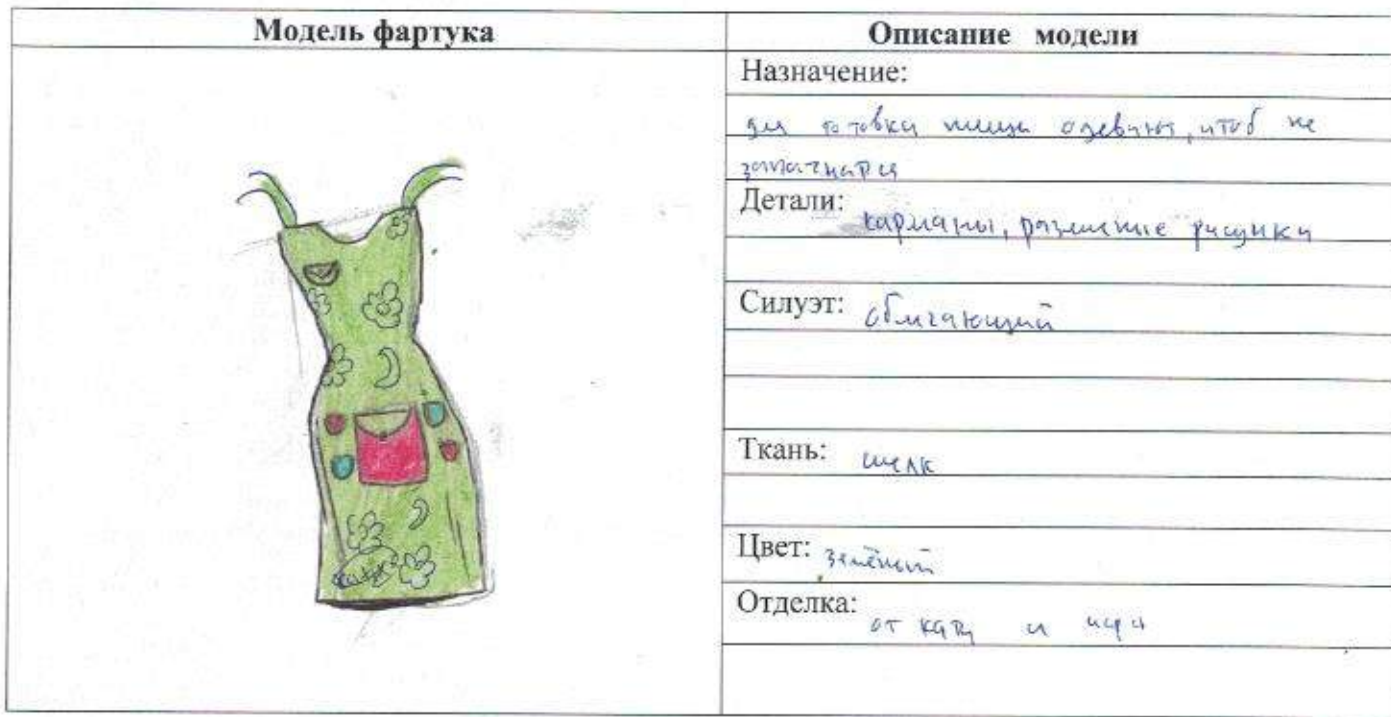 Модель фартука
Описание модели
Назначение:
для готовки пищи одевают, чтоб не
Детали:
карманы, рисунки
Силуэт: облигающий
Ткань: шелк
Цвет: зелёный
Отделка:
от и